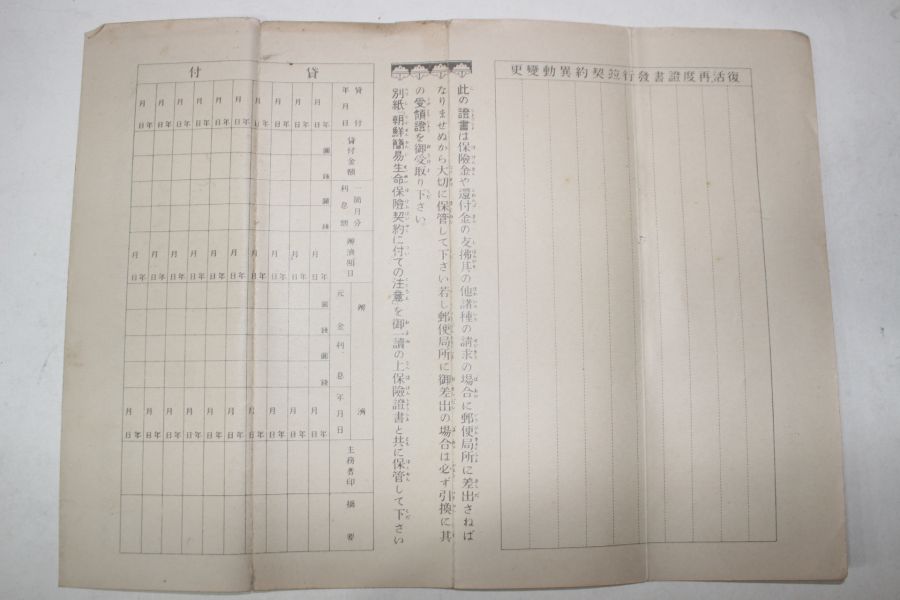 復活再度證書發行竝契約異動變更
此の證書は保險金や還付金の支拂其の他諸種の請求の場合に郵便局所に差出さねば
なりませぬから大切に保管して下さい若し郵便局所に御差出の場合は必ず引換に其
の受領證を御受取り下さい。
別紙朝鮮簡易生命保險契約に付ての注意を御一讀の上保險證書と共に保管して下さい
貸付
貸付年月日
年月日 年月日 年月日 年月日 年月日 年月日 年月日 年月日 年月日 年月日
貸付金額
圓 錢
一箇月分利息割
圓 錢
辨濟期日
年月日 年月日 年月日 年月日 年月日 年月日 年月日 年月日 年月日 年月日
辨濟
元金利息
圓 錢 圓 錢
年月日
年月日 年月日 年月日 年月日 年月日 年月日 年月日 年月日 年月日 年月日
主務者印
摘要